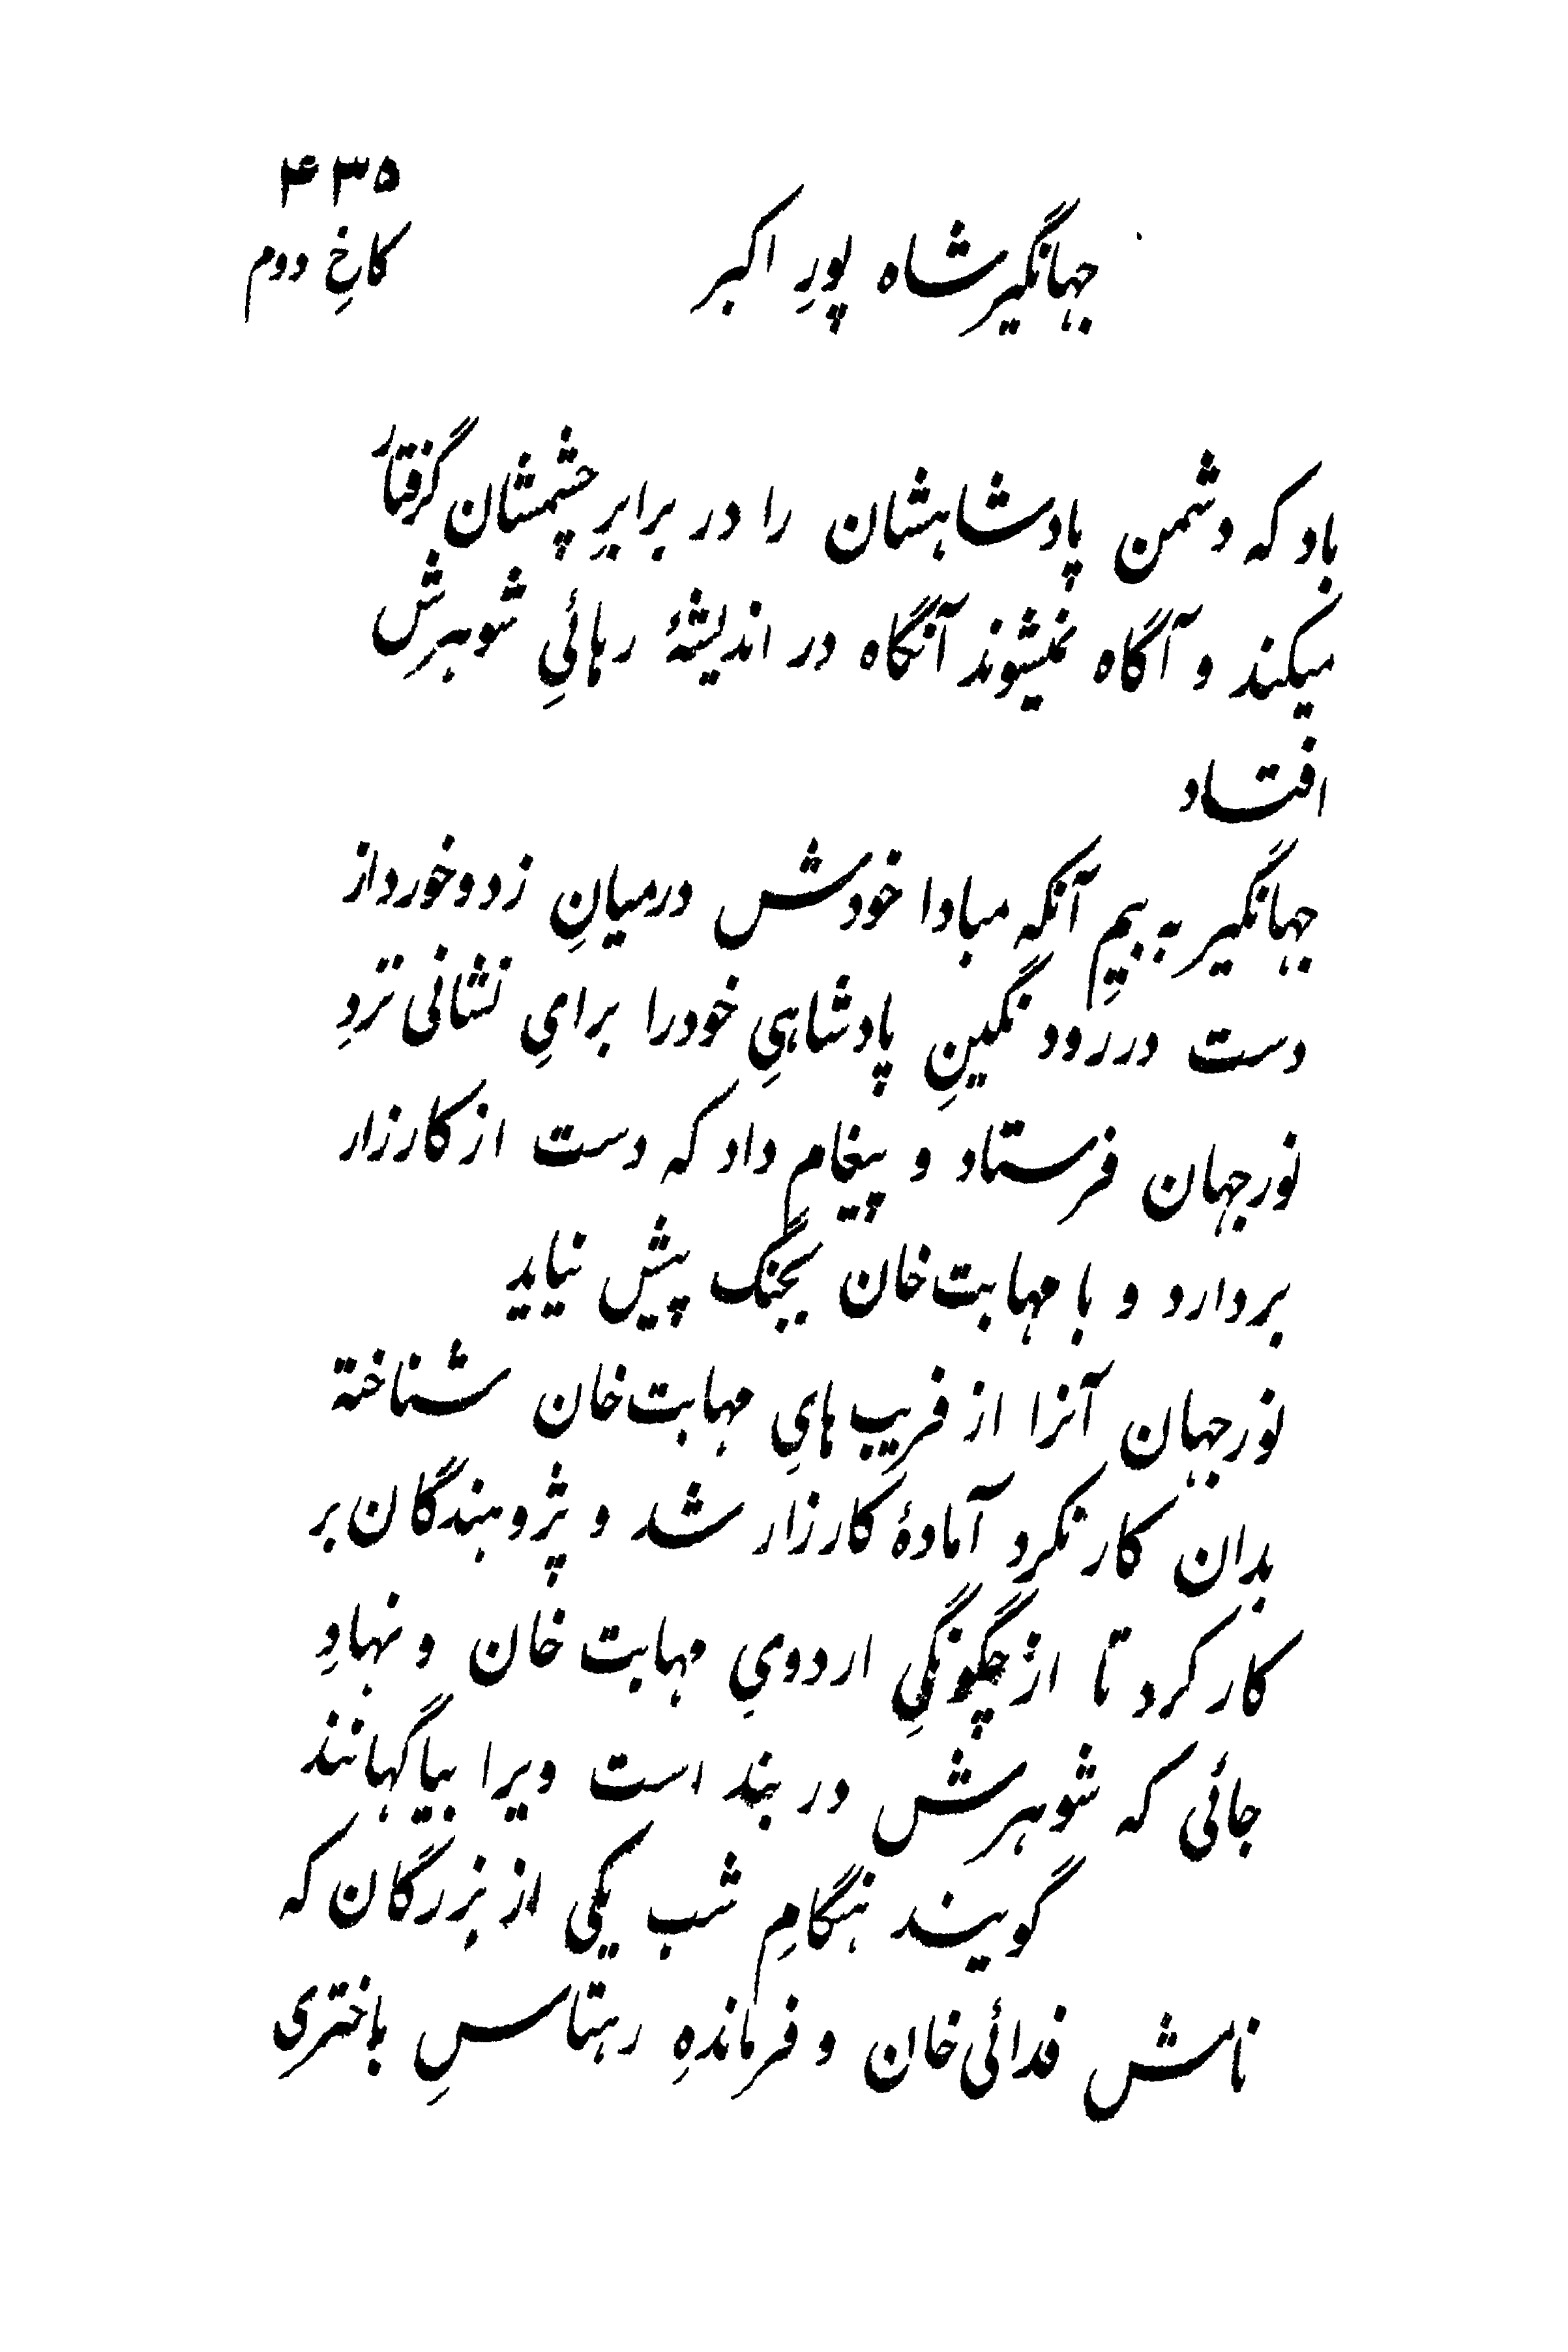 ۴۳۵
جهانگیرشاه پورِ اکبر
کاخِ دوم
باد که دشمن پادشاهشان را در برابرِ چشمشان گرفتار
میکند و آگاه نمیشوند آنگاه در اندیشهٔ رهائیِ شوهرش
افتاد
جهانگیر به بیمِ آنکه مبادا خودش درمیانِ زدوخورد از
دست در رود نگینِ پادشاهیِ خودرا برایِ نشانی نزدِ
نورجهان فرستاد و پیغام داد که دست از کارزار
بردارد و با مهابت‌خان بجنگ پیش نیاید
نورجهان آنرا از فریب‌هایِ مهابت‌خان شناخته
بدان کار نکرد آمادهٔ کارزار شد و پژوهندگان بر
کار کرد تا از چگونگیِ اردویِ مهابت خان و نهادِ
جائی که شوهرش در بند است ویرا بیاگهانند
گویند هنگامِ شب یکی از بزرگان که
نامش فدائی‌خان و فرماندهِ رهتاسِ باختری